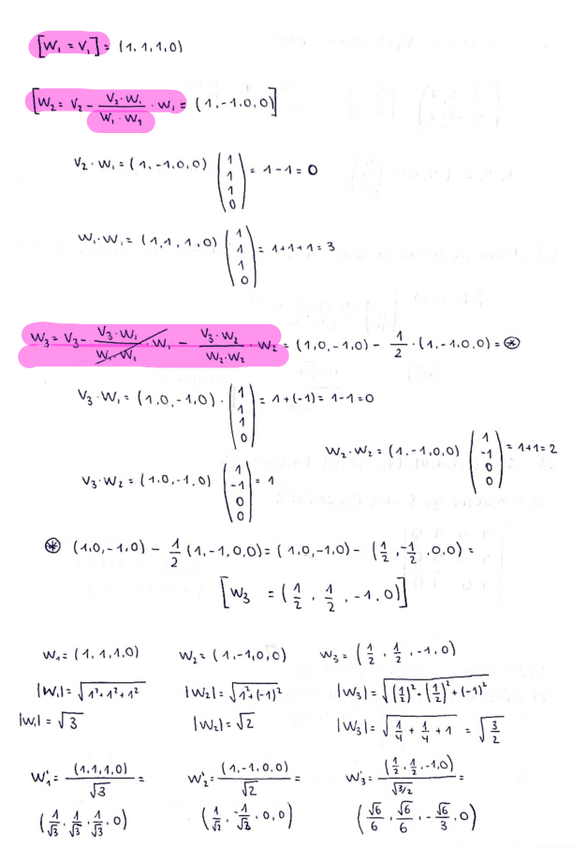 [W₁ = V₁] = (1,1,1,0)
[W₂ = V₂ - (V₂·W₁)/(W₁·W₁) · W₁ = (1,-1,0,0)]
V₂·W₁ = (1,-1,0,0) (1 1 1 0) = 1-1 = 0
W₁·W₁ = (1,1,1,0) (1 1 1 0) = 1+1+1 = 3
W₃ = V₃ - (V₃·W₁)/(W₁·W₁) · W₁ - (V₃·W₂)/(W₂·W₂) · W₂ = (1,0,-1,0) - 1/2 · (1,-1,0,0) = ⊛
V₃·W₁ = (1,0,-1,0) · (1 1 1 0) = 1+(-1) = 1-1 = 0
W₂·W₂ = (1,-1,0,0) (1 -1 0 0) = 1+1 = 2
V₃·W₂ = (1,0,-1,0) (1 -1 0 0) = 1
⊛ (1,0,-1,0) - 1/2 (1,-1,0,0) = (1,0,-1,0) - (1/2, -1/2, 0,0) =
[W₃ = (1/2, 1/2, -1, 0)]
W₁ = (1,1,1,0) W₂ = (1,-1,0,0) W₃ = (1/2, 1/2, -1, 0)
|W₁| = √(1²+1²+1²) |W₂| = √(1²+(-1)²) |W₃| = √((1/2)²+(1/2)²+(-1)²)
|W₁| = √3 |W₂| = √2 |W₃| = √(1/4 + 1/4 + 1) = √(3/2)
W'₁ = (1,1,1,0)/√3 = W'₂ = (1,-1,0,0)/√2 = W'₃ = (1/2, 1/2, -1, 0)/√3/2 =
(1/√3, 1/√3, 1/√3, 0) (1/√2, -1/√2, 0, 0) (√6/6, √6/6, -√6/3, 0)